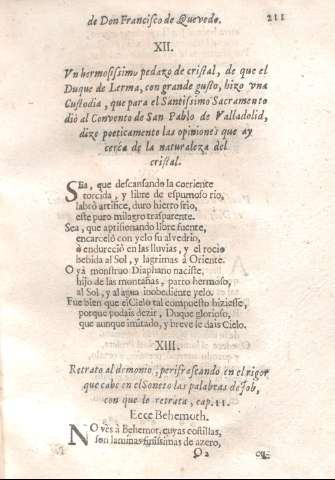 de Don Francisco de Quevedo. 211
XII.
Vn hermosissimo pedazo de cristal, de que el
Duque de Lerma, con grande gusto, hizo vna
Custodia, que para el Santissimo Sacramento
diò al Convento de San Pablo de Valladolid,
dize poeticamente las opiniones que ay
cerca de la naturaleza del
cristal.
SEa, que descansando la corriente
torcida, y libre de espumoso rio,
labrò artifice, duro hierro frio,
este puro milagro trasparente.
Sea, que aprisionando libre fuente,
encarcelò con yelo su alvedrio,
ò endureciò en las lluvias, y el rocio
bebida al Sol, y lagrimas à Oriente.
O yà monstruo Diaphano naciste,
hijo de las montañas, parto hermoso,
al Sol, y al agua inobediente yelo.
Fue bien que el Cielo tal compuesto hiziesse,
porque podais dezir, Duque glorioso,
que aunque imitado, y breve le dais Cielo.
XIII.
Retrato al demonio, perifraseando en el rigor
que cabe en el Soneto las palabras de Job,
con que le retrata, cap. 11.
Ecce Behemoth.
NO vès à Behemot, cuyas costillas,
son laminas finissimas de azero,
O2 cu-